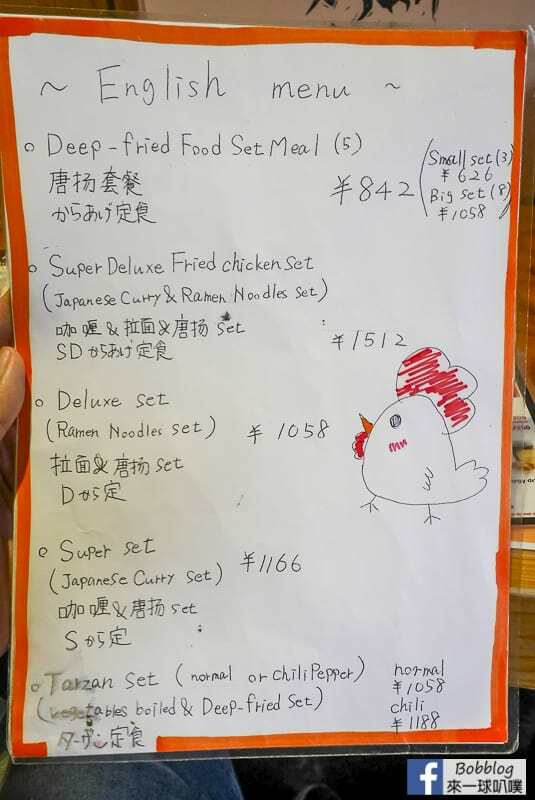 ~ English menu ~
○ Deep-fried Food Set Meal (5)
唐扬套餐
からあげ定食
¥842
Small set (3)
¥626
Big set (8)
¥1058
○ Super Deluxe Fried chicken set
(Japanese Curry & Ramen Noodles set)
咖喱&拉面&唐扬 set
SDからあげ定食
¥1512
○ Deluxe set
(Ramen Noodles set) ¥1058
拉面&唐扬 set
Dから定
○ Super set
(Japanese Curry set) ¥1166
咖喱&唐扬 set
Sから定
○ Tarzan set (normal or chiliPepper)
(vegetables boiled & Deep-fried Set)
ターザン定食
normal
¥1058
chili
¥1188
Bobblog
來一球叭噗